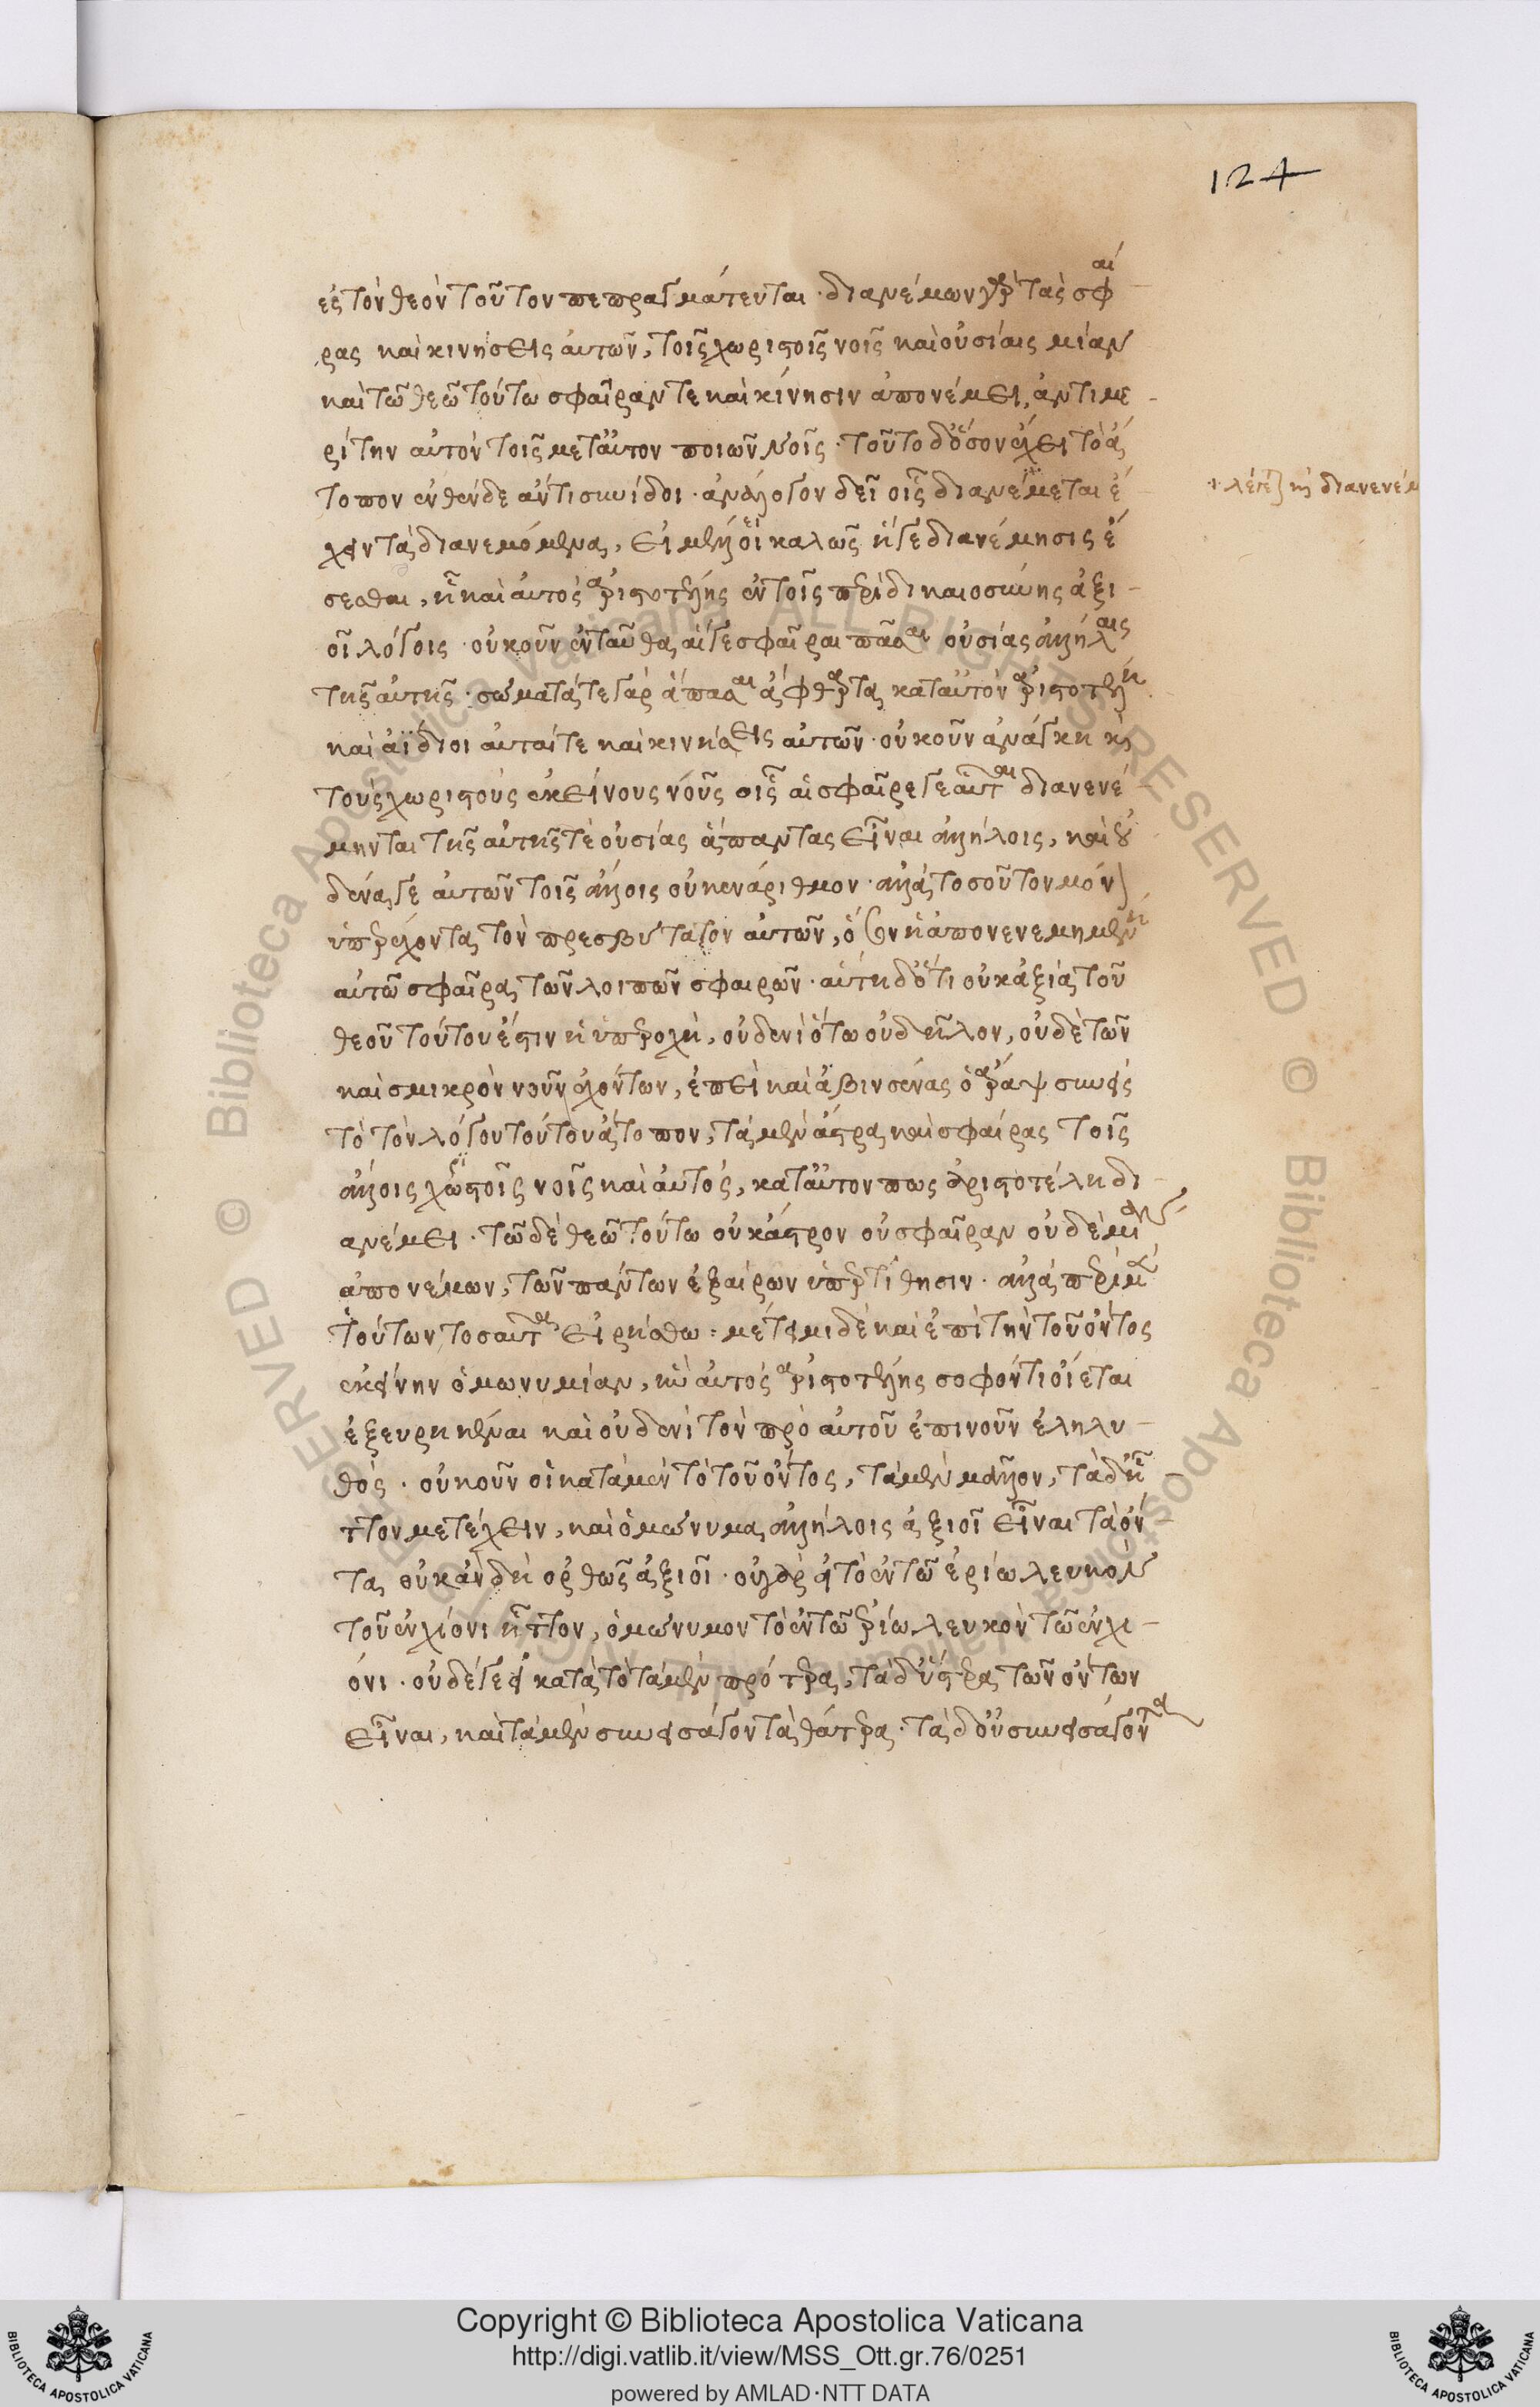 124
ες τὸν θεὸν τοῦτον πεπραγμάτευται · διανέμων γὰρ τὰς σφαί
ρας καὶ κινήσεις αὐτῶν, τοῖς χωριστοῖς νοῖς καὶ οὐσίαις μίαν
καὶ τῶ θεῶ τούτω σφαῖραν τε καὶ κίνησιν ἀπονέμει, ἀντιμε
ρίτην αὐτὸν τοῖς μετ' αὐτὸν ποιῶν νοῖς · τοῦτο δ' ὅσον ἔχει τὸ ἄ
τοπον ἐνθένδε ἄν τις συνίδοι · ἀνάλογον δεῖ οἷς διανέμεται ἔ
χειν τὰ διανεμόμενα, εἰ μέλλοι καλῶς ἥ γε διανέμησις ἔ
σεσθαι, ἧ καὶ αὐτὸς ἀριστοτέλης ἐν τοῖς περὶ δικαιοσύνης ἀξι
οῖ λόγοις · οὐκοῦν ἐνταῦθα αἵ γε σφαῖραι πᾶσαι οὐσίας ἀλλήλαις
τῆς αὐτῆς · σώματά τε γὰρ ἅπασαι ἄφθαρτα κατ' αὐτὸν ἀριστοτέλη
καὶ ἀΐδιοι αὐταί τε καὶ κινήσεις αὐτῶν · οὐκοῦν ἀνάγκη καὶ
τοὺς χωριστοὺς ἐκείνους νοῦς οἷς αἱ σφαῖρέ γε αὗται διανενέ
μηνται τῆς αὐτῆς τε οὐσίας ἅπαντας εἶναι ἀλλήλοις, καὶ οὐ
δένα γε αὐτῶν τοῖς ἄλλοις οὐκ ἐνάριθμον · ἀλλὰ τοσοῦτον μόνον
ὑπερέχοντα τὸν πρεσβύτατον αὐτῶν, ὅσον ἡ ἀπονενεμημένη
αὐτῶ σφαῖρα τῶν λοιπῶν σφαιρῶν · αὕτη δ' ὅτι οὐκ ἀξία τοῦ
θεοῦ τούτου ἐστὶν ἡ ὑπεροχὴ, οὐδενὶ ὅτω οὐ δῆλον, οὐδὲ τῶν
καὶ σμικρὸν νοῦν ἐχόντων, ἐπεὶ καὶ ἀβινσένας ὁ ἄραψ συνεὶς
τὸ τὸν λόγου τούτου ἄτοπον, τὰ μὲν ἄστρα καὶ σφαίρας τοῖς
ἄλλοις χωριστοῖς νοῖς καὶ αὐτὸς, κατ' αὐτόν πως ἀριστοτέλη δι
ανέμει · τῶ δὲ θεῶ τούτω οὐκ ἄστρον οὐ σφαῖραν οὐδεμίαν
ἀπονέμων, τῶν πάντων ἐξαίρων ὑπερτίθησιν · ἀλλὰ περὶ μὲν
τούτων τοσαῦτα εἰρήσθω : μέτειμι δὲ καὶ ἐπὶ τὴν τοῦ ὄντος
ἐκείνην ὁμωνυμίαν, ἣν αὐτὸς ἀριστοτέλης σοφόν τι οἴεται
ἐξευρηκέναι καὶ οὐδενὶ τῶν πρὸ αὐτοῦ ἐπὶ νοῦν ἐληλυ
θός · οὐκοῦν εἰ κατὰ μὲν τὸ τοῦ ὄντος, τὰ μὲν μᾶλλον, τὰ δ' ἧ
ττον μετέχειν, καὶ ὁμώνυμα ἀλλήλοις ἀξιοῖ εἶναι τὰ ὄν
τα, οὐκ ἂν δὴ ὀρθῶς ἀξιοῖ · οὐ γὰρ εἰ τὸ ἐν τῶ ἐρίω λευκὸν
τοῦ ἐν χιόνι ἧττον, ὁμώνυμον τὸ ἐν τῶ ἐρίω λευκὸν τῶ ἐν χι
όνι · οὐδέ γε εἰ κατὰ τὸ τὰ μὲν πρότερα, τὰ δ' ὕστερα τῶν ὄντων
εἶναι, καὶ τὰ μὲν συνεισάγοντα θάτερα · τὰ δ' οὐ συνεισάγοντα
Copyright © Biblioteca Apostolica Vaticana
http://digi.vatlib.it/view/MSS_Ott.gr.76/0251
powered by AMLAD·NTT DATA